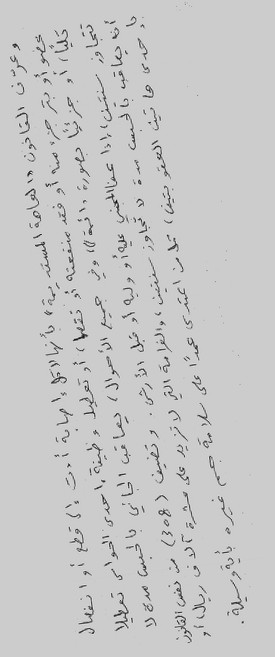 وعرّف القانون «العاهة المستديمة» بأنها «كل إصابة أدت إلى قطع أو انفصال
عضو أو بتر جزء منه أو فقد منفعته أو نقصها، أو تعطيل وظيفة إحدى الحواس تعطيلا
كليًّا، أو جزئيًّا بصورة دائمة»، وفي جميع الأحوال، يعاقب الجاني بالحبس مدة لا
تتجاوز سنتين، إذا عفا المجني عليه أو وليه أو قبل الأرش. وتضيف (308) من نفس القانون
أنه يعاقب بالحبس مدة لا تجاوز سنتين، والغرامة التي لا تزيد على عشرة آلاف ريال، أو
بإحدى هاتين العقوبتين، كل من اعتدى عمدًا على سلامة جسم غيره بأية وسيلة.